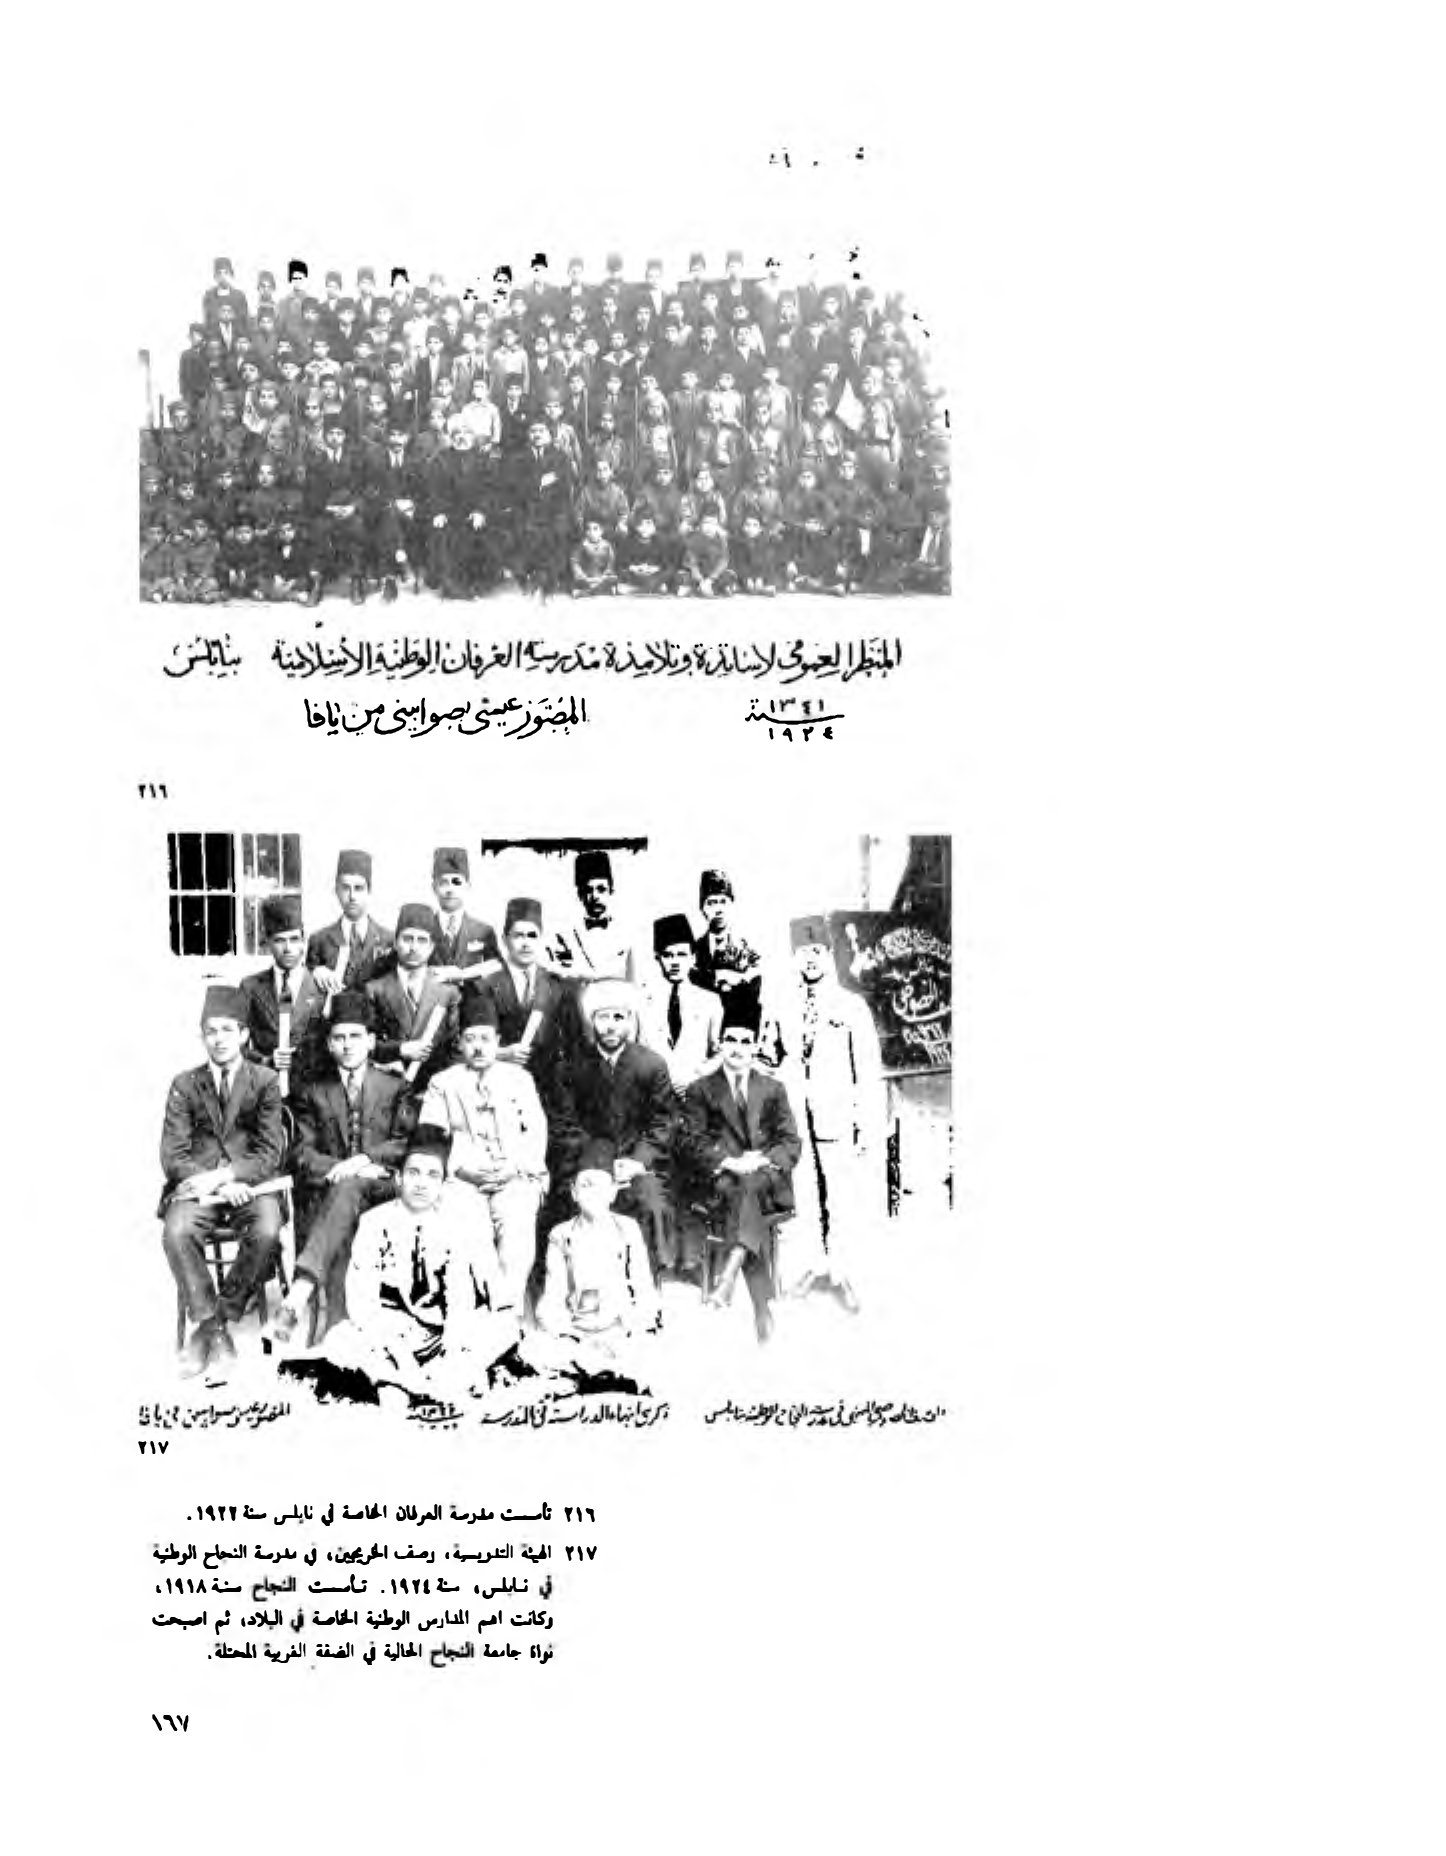 المنظر العمومي لاساتذة وتلامذة مدرسة العرفان الوطنية الاسلامية بنابلس
سنة ١٣٤١ ١٩٢٤ المصور عيسى صوابيني من يافا
٢١٦
ذكرى انتهاء الدراسة في المدرسة سنة المصور عيسى صوابيني من يافا
٢١٧
٢١٦ تأسست مدرسة العرفان الخاصة في نابلس سنة ١٩٢٢.
٢١٧ الهيئة التدريسية، وصف الخريجين، في مدرسة النجاح الوطنية
في نابلس، سنة ١٩٢٤. تأسست النجاح سنة ١٩١٨،
وكانت اهم المدارس الوطنية الخاصة في البلاد، ثم اصبحت
نواة جامعة النجاح الحالية في الضفة الغربية المحتلة.
١٦٧